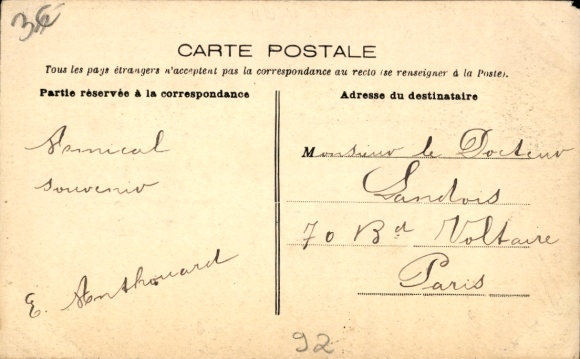 3€
CARTE POSTALE
Tous les pays étrangers n'acceptent pas la correspondance au recto (se renseigner à la Poste).
Partie réservée à la correspondance
Amical
souvenir
E. Anthouard
Adresse du destinataire
Monsieur le Docteur
Landois
70 Bd Voltaire
Paris
92